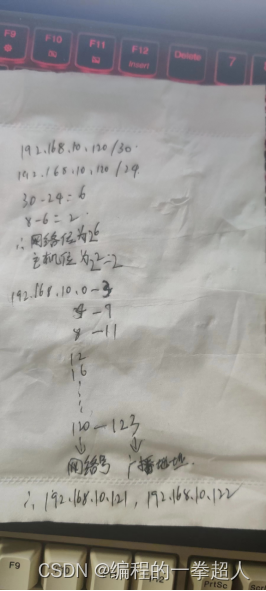 F9
F10
F11
F12
Insert
Delete
7
8
192.168.10.120/30
192.168.10.120/24
30-24=6
8-6=2
∴网络位为26
主机位为2²-2
192.168.10.0-3
-7
8-11
12
16
120-123
网络号 广播地址.
∴ 192.168.10.121, 192.168.10.122
F9
PrtSc
CSDN @编程的一拳超人